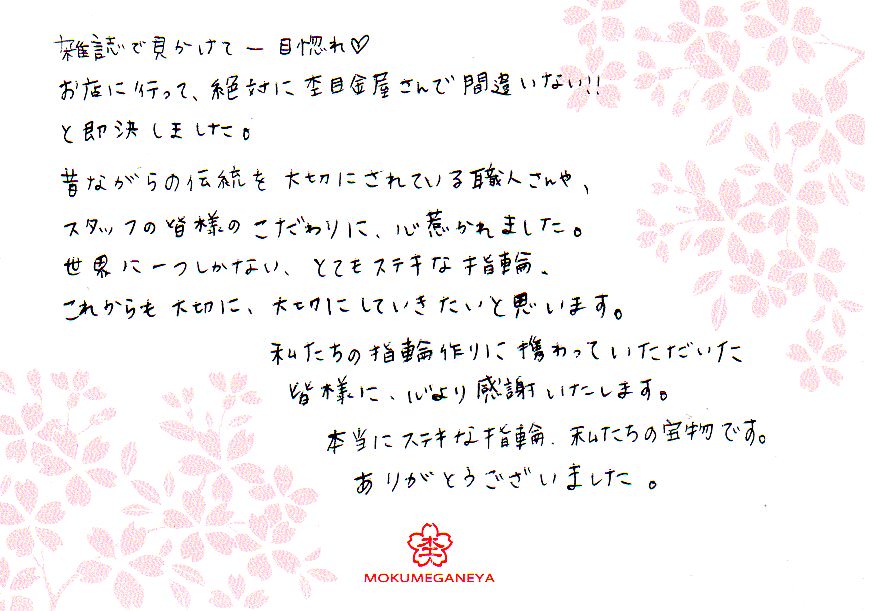 雑誌で見かけて一目惚れ♡
お店に行って、絶対に杢目金屋さんで間違いない!!
と即決しました。
昔ながらの伝統を大切にされている職人さんや、
スタッフの皆様のこだわりに、心惹かれました。
世界に一つしかない、とてもステキな指輪、
これからも大切に、大切にしていきたいと思います。
私たちの指輪作りに携わっていただいた
皆様に、心より感謝いたします。
本当にステキな指輪、私たちの宝物です。
ありがとうございました。
杢
MOKUMEGANEYA